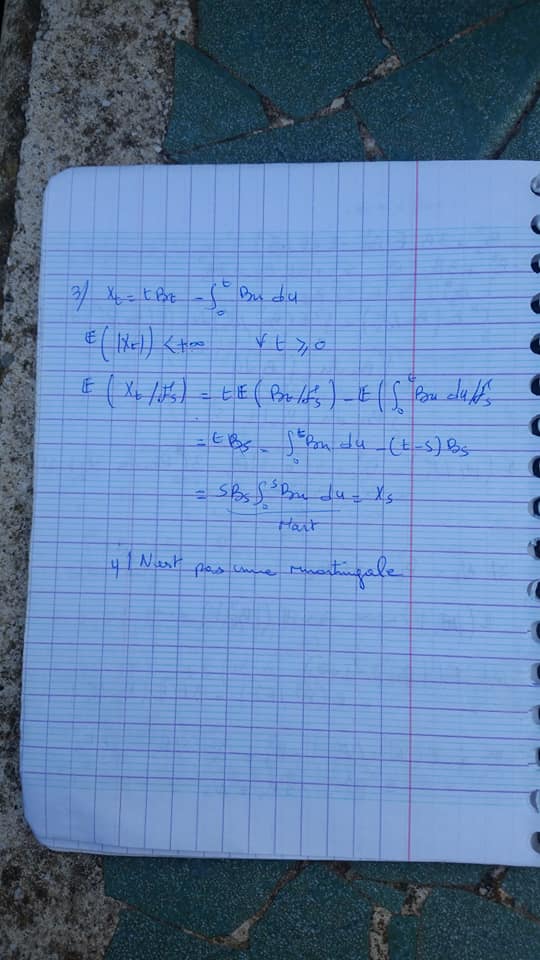 3/ Xt = tBt - ∫₀ᵗ Bu du
E(|Xt|) < +∞ ∀ t ⩾ 0
E(Xt/Fs) = tE(Bt/Fs) - E(∫₀ᵗ Bu du/Fs
= tBs - ∫₀ᵗ Bu du - (t-s) Bs
= sBs ∫₀ˢ Bu du = Xs
Mart
4/ N'est pas une martingale